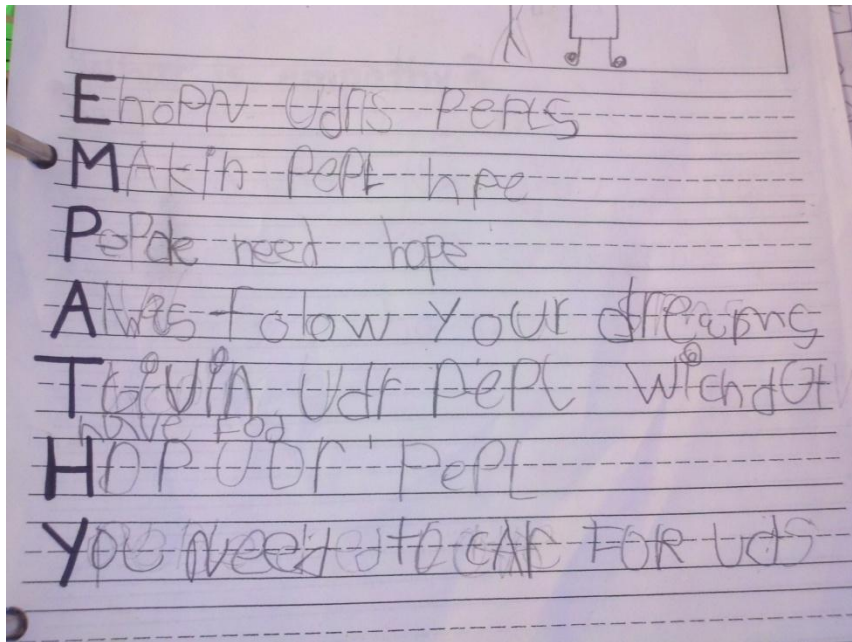 EhoPN UdRS PePLS
MAkin PePL hPe
PePde need hope
AlWes folow Your dreams
TGiViN Udr PePL Wich dOt
have Fod
HOP UDr PePL
You Need to cAr FOR UdS